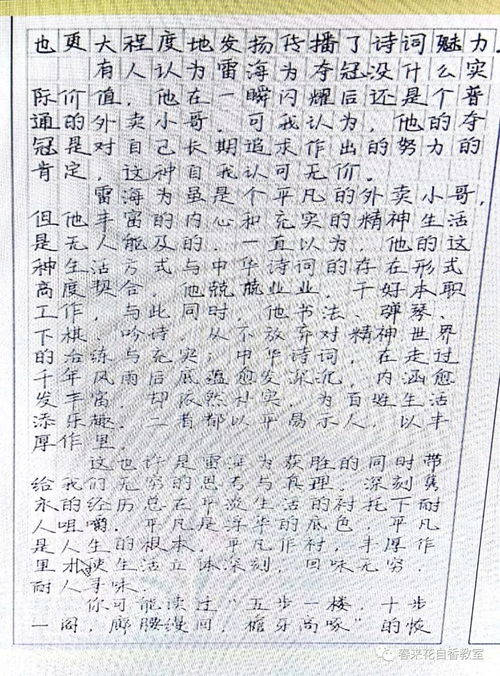 也更大程度地发扬传播了诗词魅力.
有人认为雷海为夺冠没什么实
际价值，他在一瞬闪耀后还是个普
通的外卖小哥，可我认为，他的夺
冠是对自己长期追求作出的努力的
肯定，这种自我认可无价。
雷海为虽是个平凡的外卖小哥，
但他丰富的内心和充实的精神生活
是无人能及的，一直以为，他的这
种生活方式与中华诗词的存在形式
高度契合，他兢兢业业，干好本职
工作，与此同时，他书法、弹琴、
下棋、吟诗，从不放弃对精神世界
的冶练与充实；中华诗词，在走过
千年风雨后底蕴愈发深沉，内涵愈
发丰富，却依然朴实，为百姓生活
添乐趣，二者都以平易示人，以丰
厚作里。
这也许是雷海为获胜的同时带
给我们无穷的思考与真理，深刻隽
永的经历总在平淡生活的衬托下耐
人咀嚼，平凡是浮华的底色，平凡
是人生的根本，平凡作衬，丰厚作
里才使生活立体深刻，回味无穷，
耐人寻味。
你可能读过“五步一楼，十步
一阁，廊腰缦回，檐牙高啄”的恢
春来花自香教室